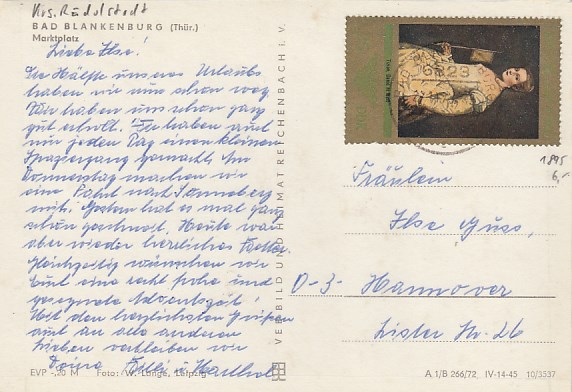 Krs. Rudolstadt
BAD BLANKENBURG (Thür.)
Marktplatz
Liebe Ilse!
Die Hälfte unseres Urlaubs
haben wir nun schon weg
Wir haben uns schon ganz
gut erholt. Wir haben auch
nun jeden Tag einen kleinen
Spaziergang gemacht. Am
Donnerstag machen wir
eine Fahrt nach Sonneberg
mit. Gestern hat es mal ganz
schön geschneit. Heute war
aber wieder herrliches Wetter.
Gleichzeitig wünschen wir
Euch eine recht frohe und
gesegnete Adventszeit!
Mit den herzlichsten Grüßen
auch an alle anderen
Lieben verbleiben wir
Deine Willi u.
EVP -,20 M Foto: W. Lange, Leipzig
VERBILD UND HEIMAT REICHENBACH i. V.
1895
6,-
Fräulein
Ilse Guss,
D-3- Hannover
Lister Str. 26
A 1/B 266/72 IV-14-45 10/3537